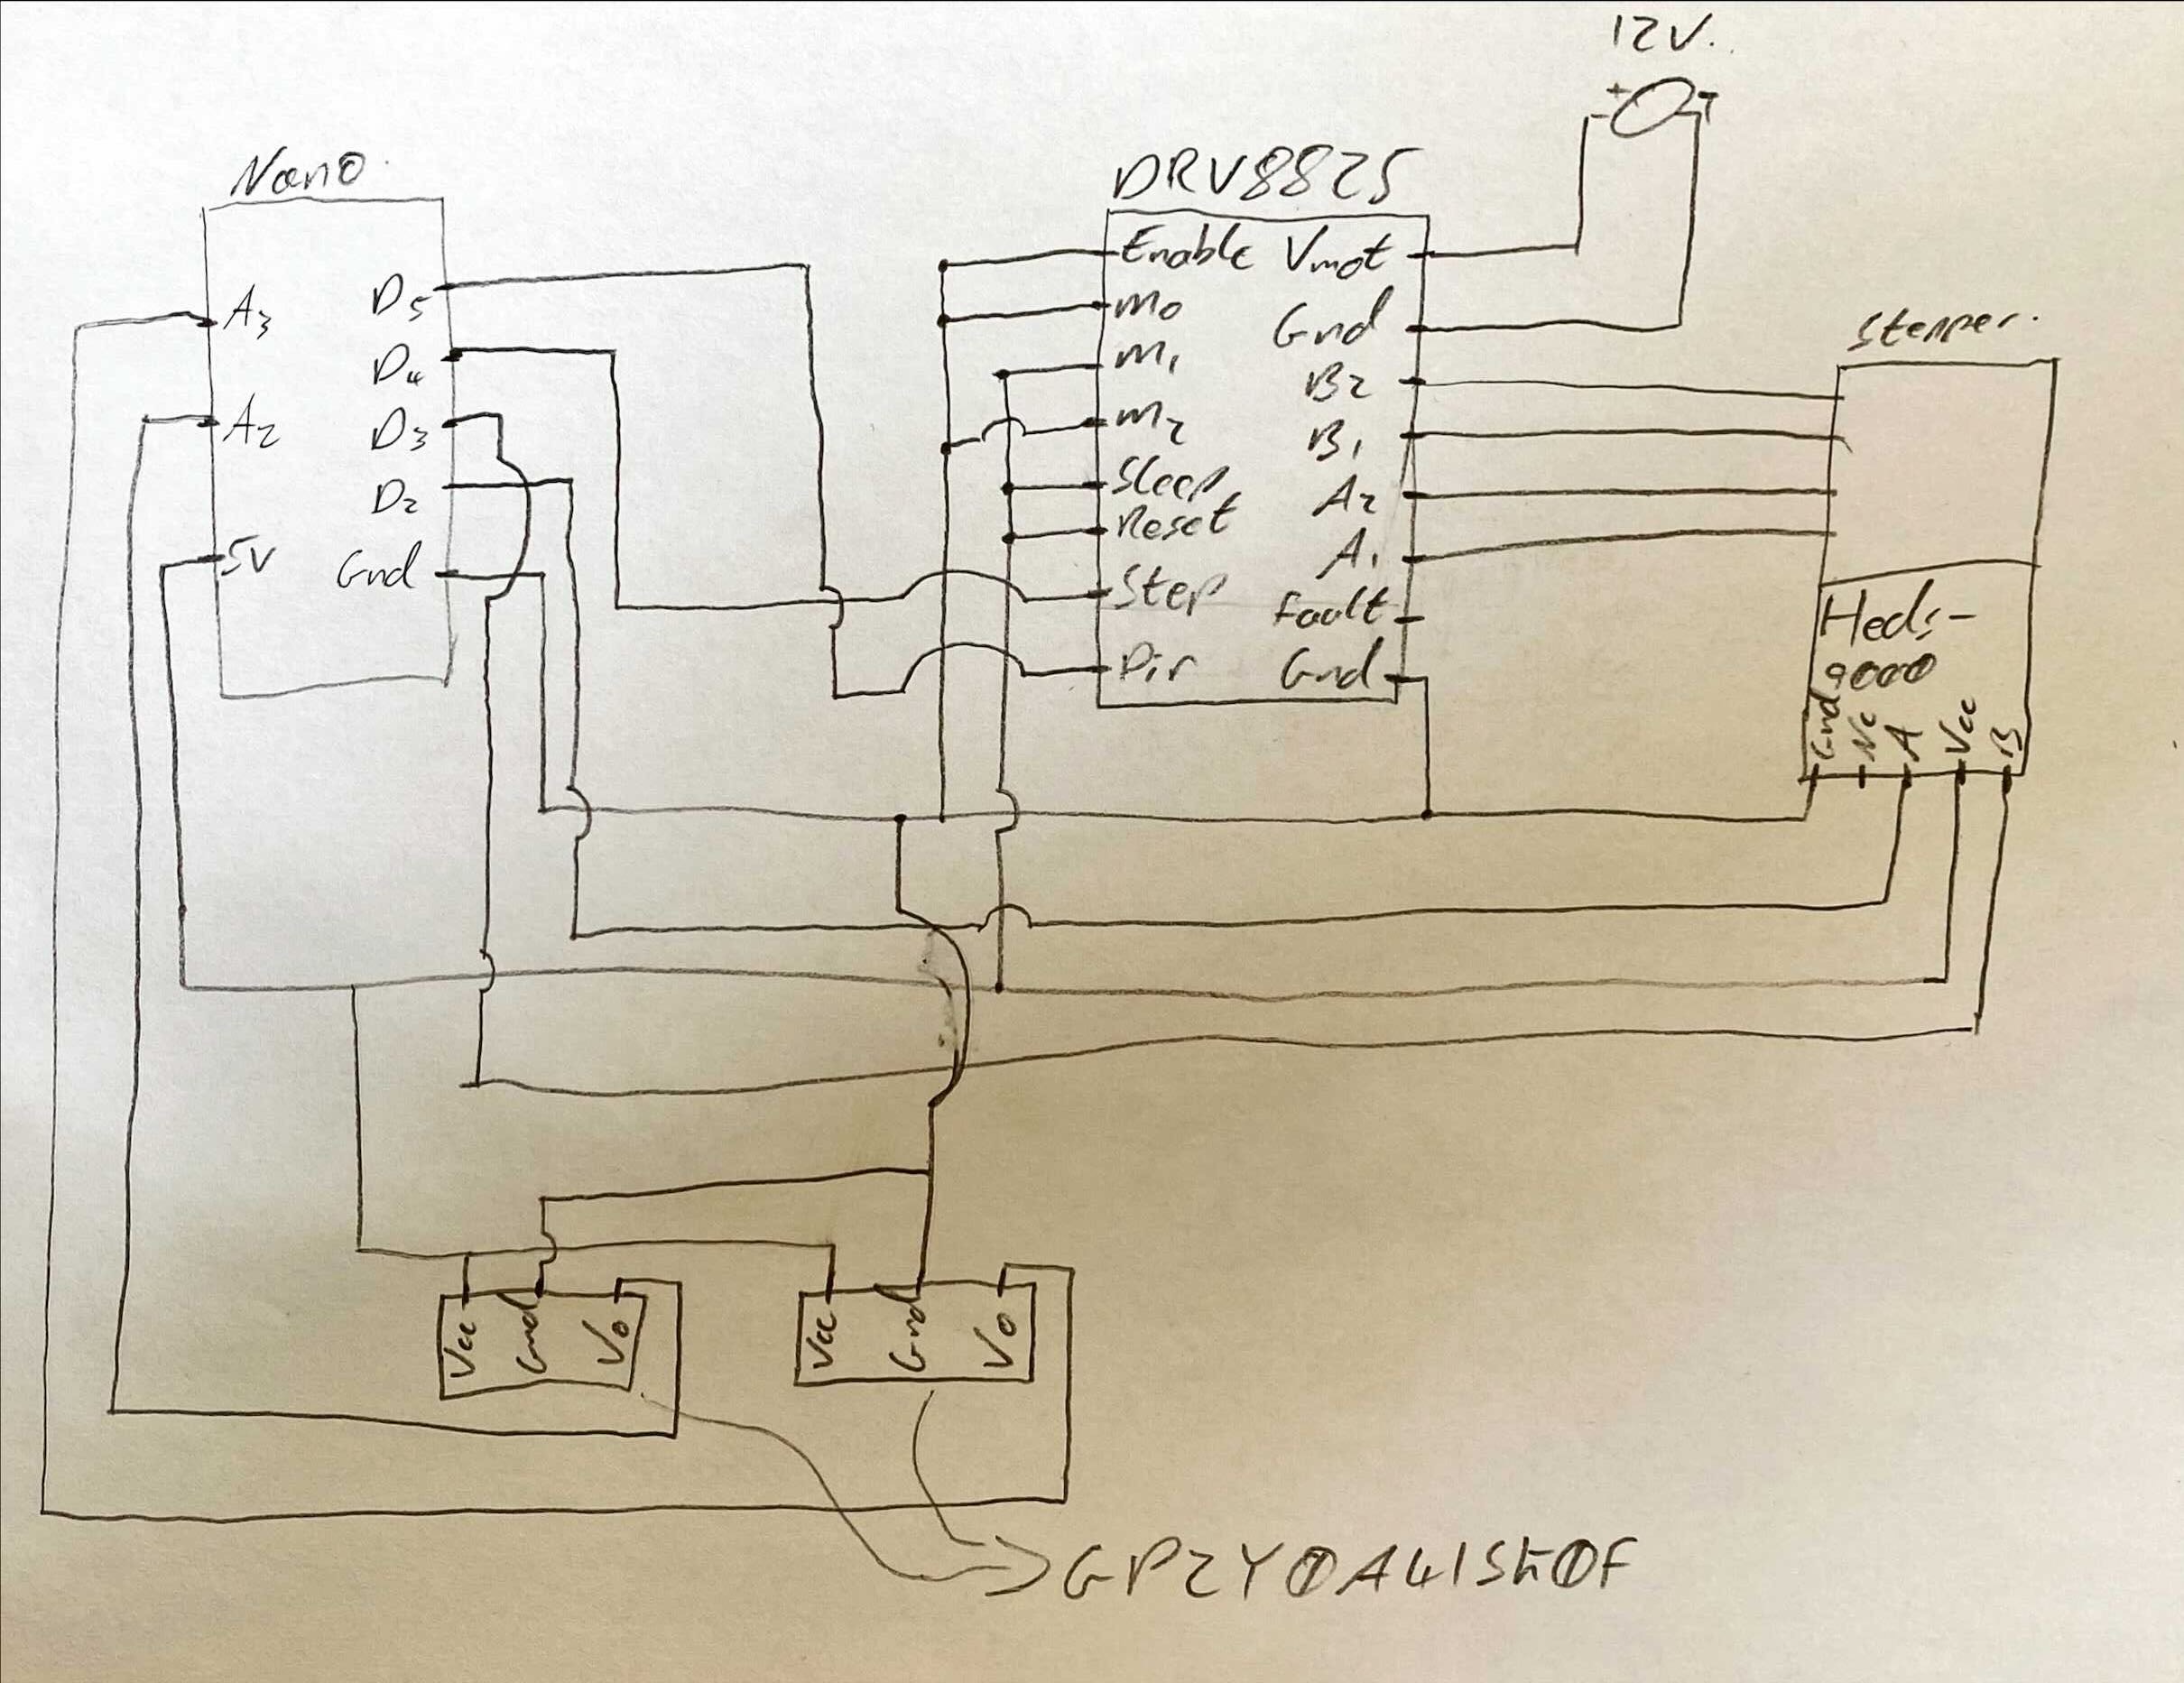 12V.
+ -
Nano.
A3
A2
5V
D5
D4
D3
D2
Gnd
DRV8825
Enable
M0
M1
M2
Sleep
Reset
Step
Dir
Vmot
Gnd
B2
B1
A2
A1
Fault
Gnd
Stepper.
Heds-
9000
Gnd
Nc
A
Vcc
B
Vcc
Gnd
Vo
Vcc
Gnd
Vo
GP2Y0A41SK0F